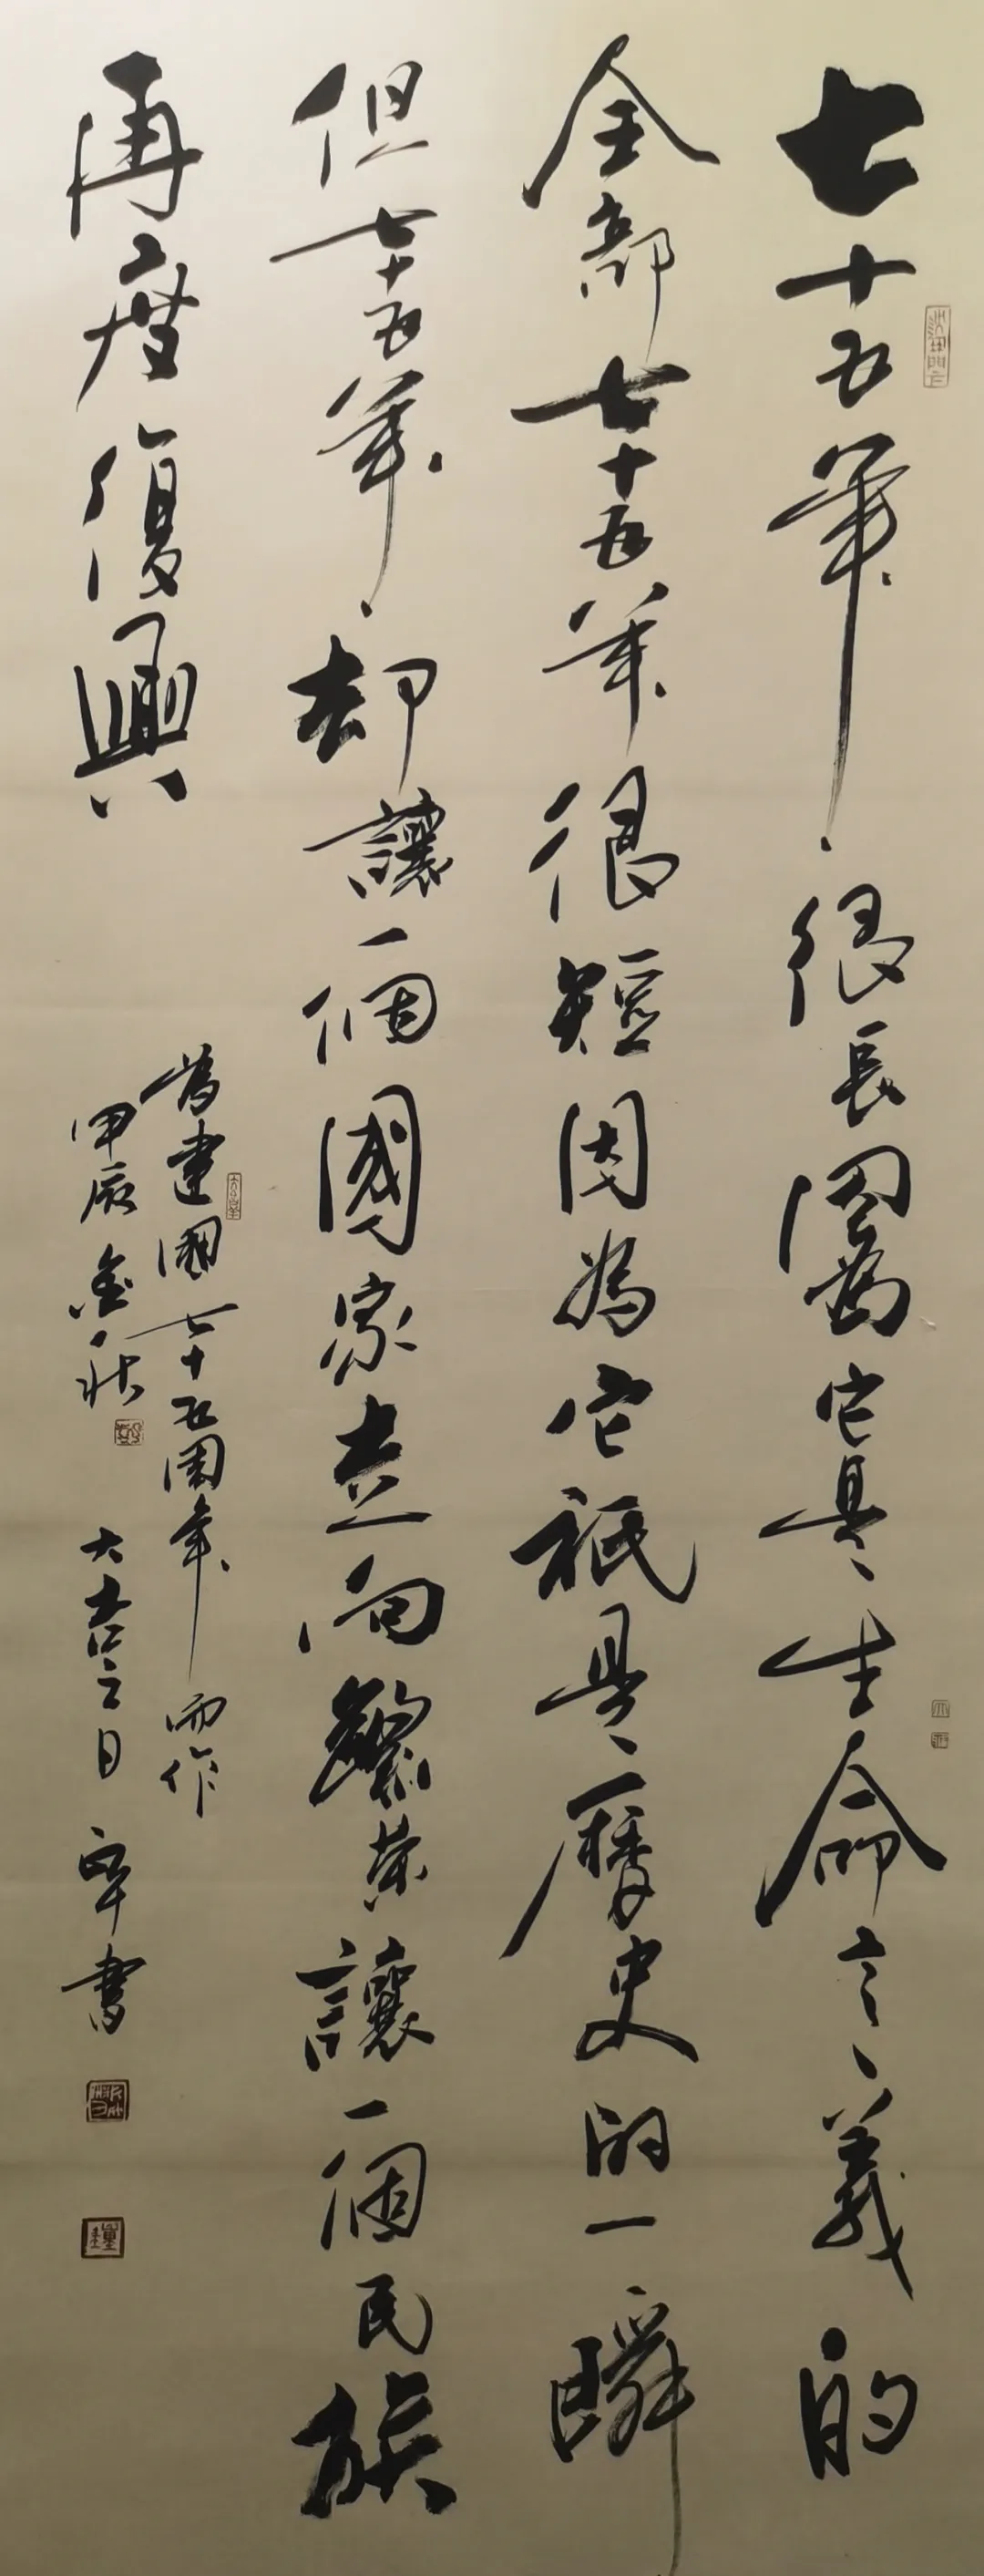 七十五年很長因為它是生命意義的
全部七十五年很短因為它祇是歷史的一瞬
但七十五年却讓一個國家走向繁榮讓一個民族
再度復興
為建國七十五周年而作
甲辰金秋大吉之日書